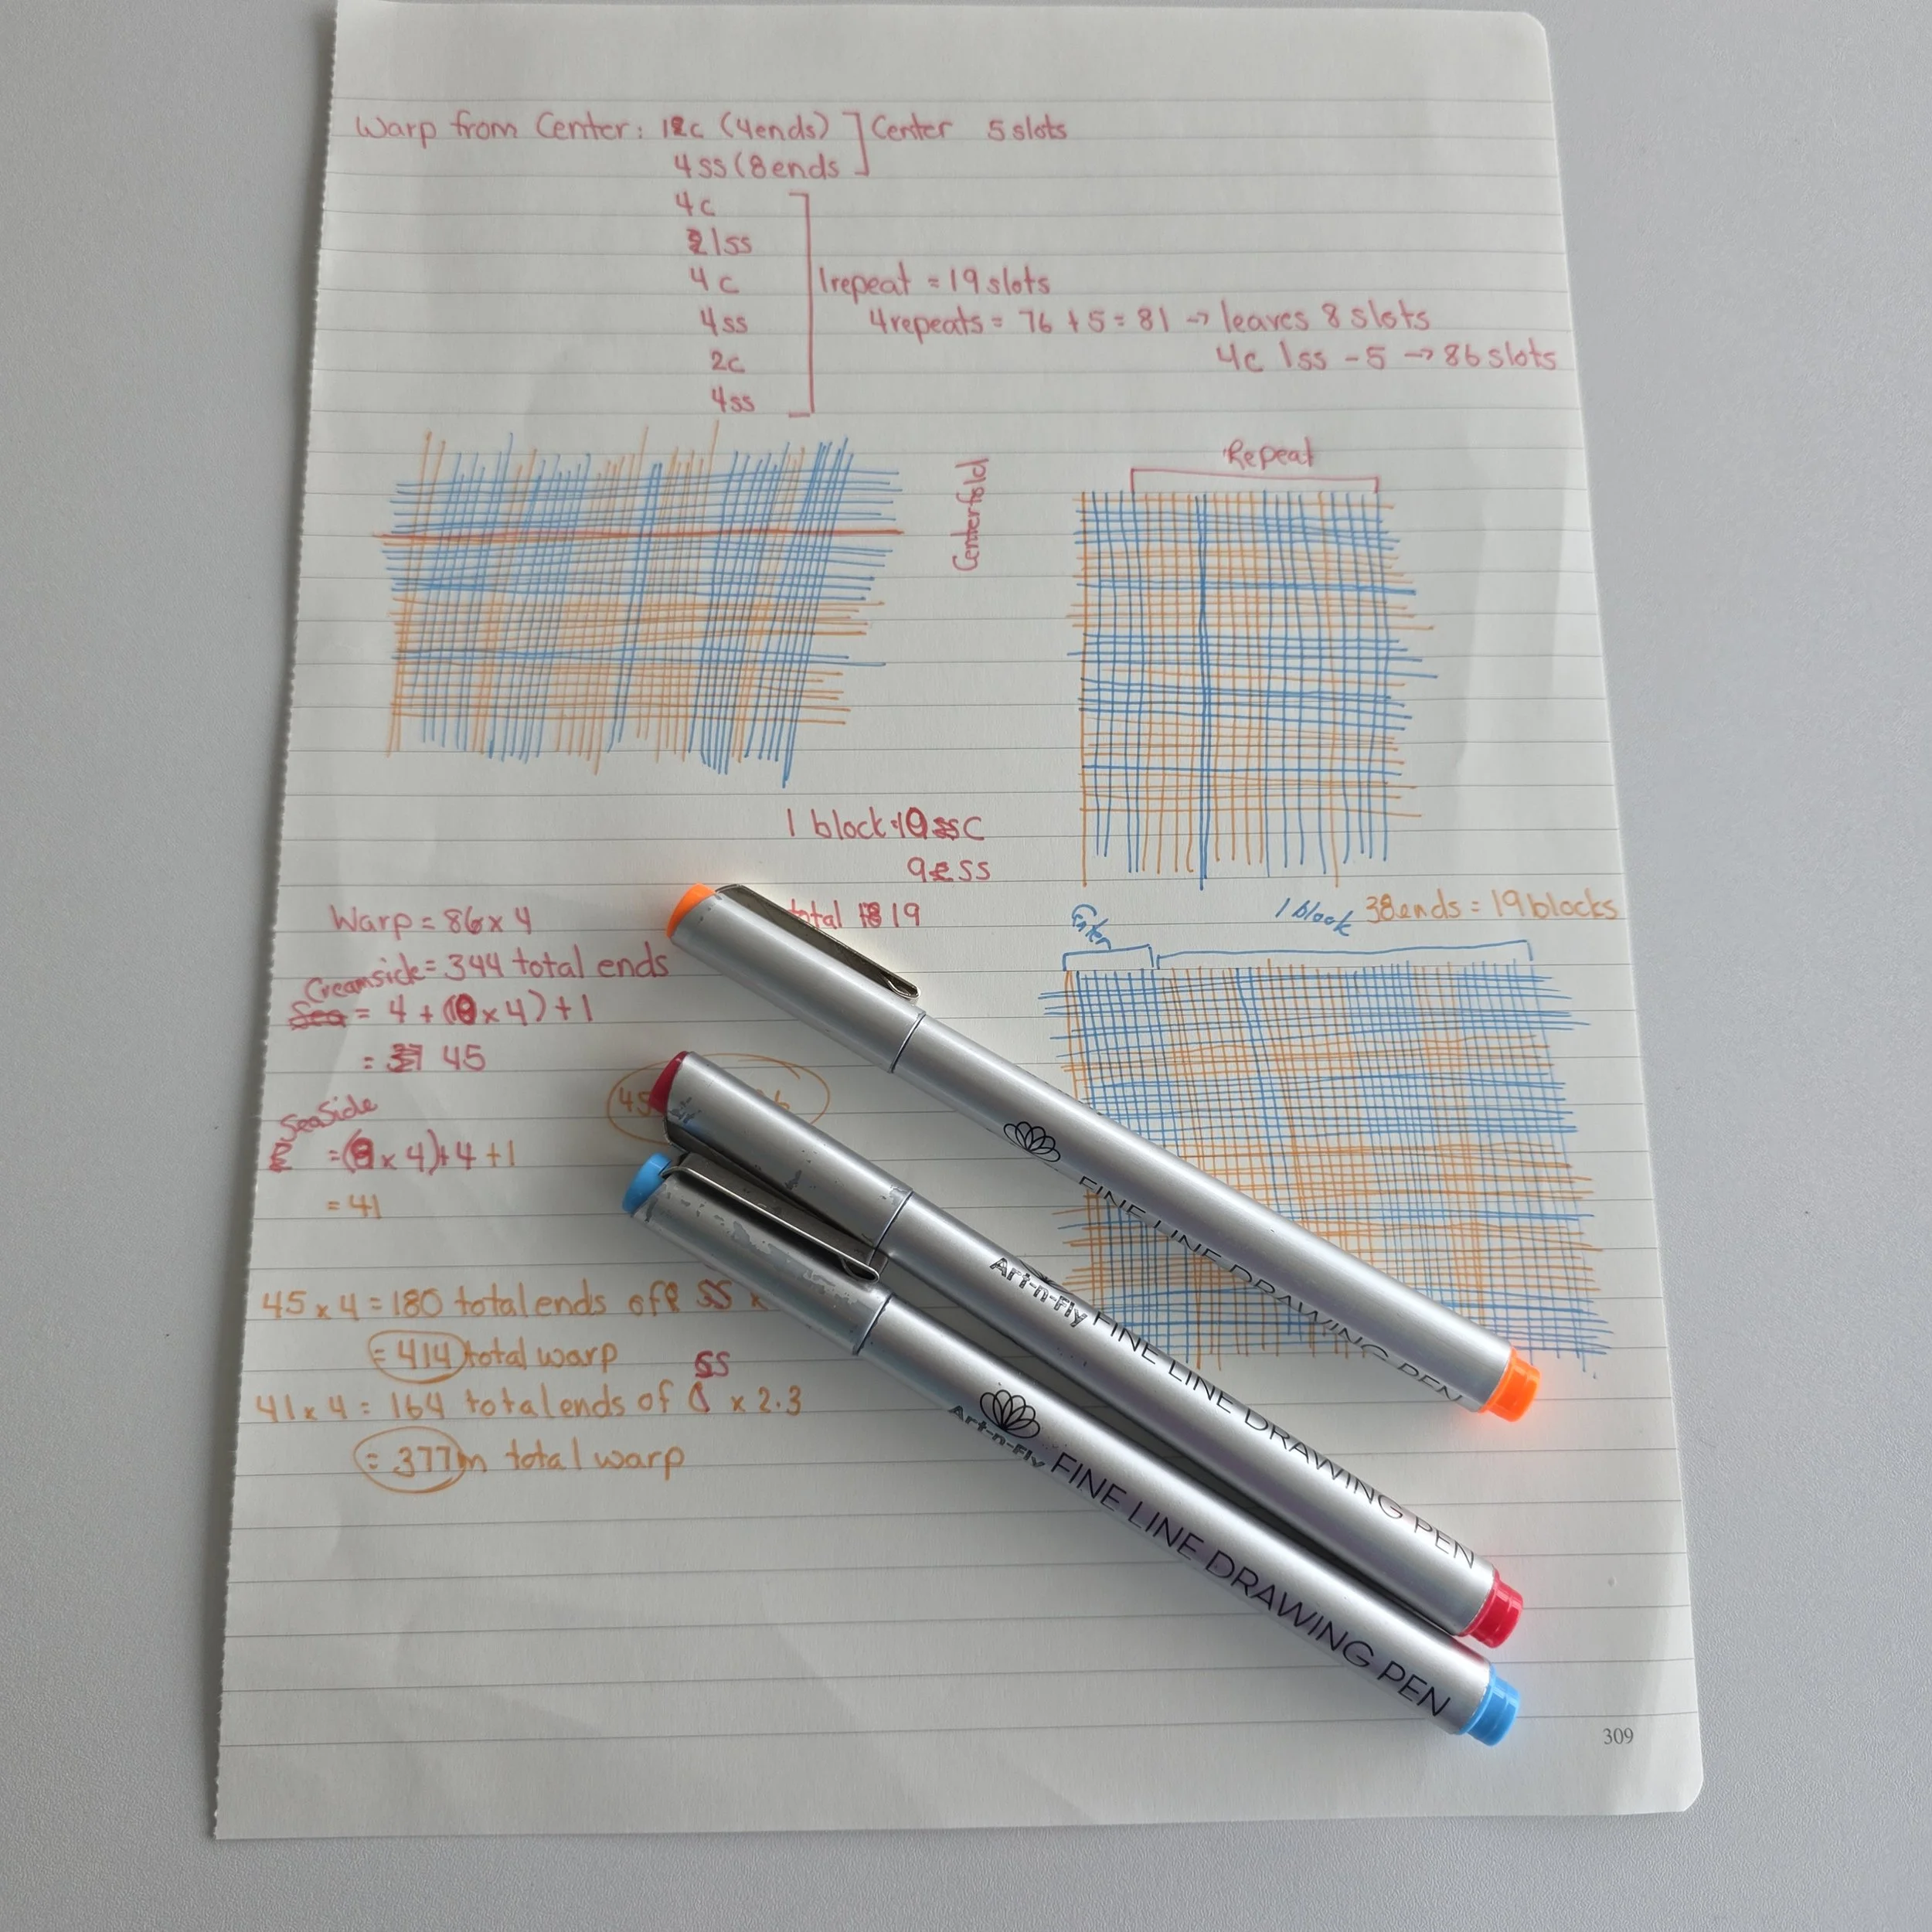 Warp from Center: 1c (4ends) Center 5 slots
4ss (8ends
4c
1ss
4c
1repeat = 19 slots
4ss
4repeats = 76 + 5 = 81 → leaves 8 slots
2c
4c 1ss - 5 → 86 slots
4ss
Centerfold
Repeat
1 block 10 c
9 ss
total 19
Warp = 86 x 4
Creamside = 344 total ends
= 4 + (10 x 4) + 1
= 45
SeaSide
= (9 x 4) + 4 + 1
= 41
45
45 x 4 = 180 total ends of ss x
= 414 total warp
ss
41 x 4 = 164 total ends of x 2.3
= 377m total warp
1 block 38ends = 19blocks
FINE LINE DRAWING PEN
Art-n-Fly FINE LINE DRAWING PEN
Art-n-Fly FINE LINE DRAWING PEN
309